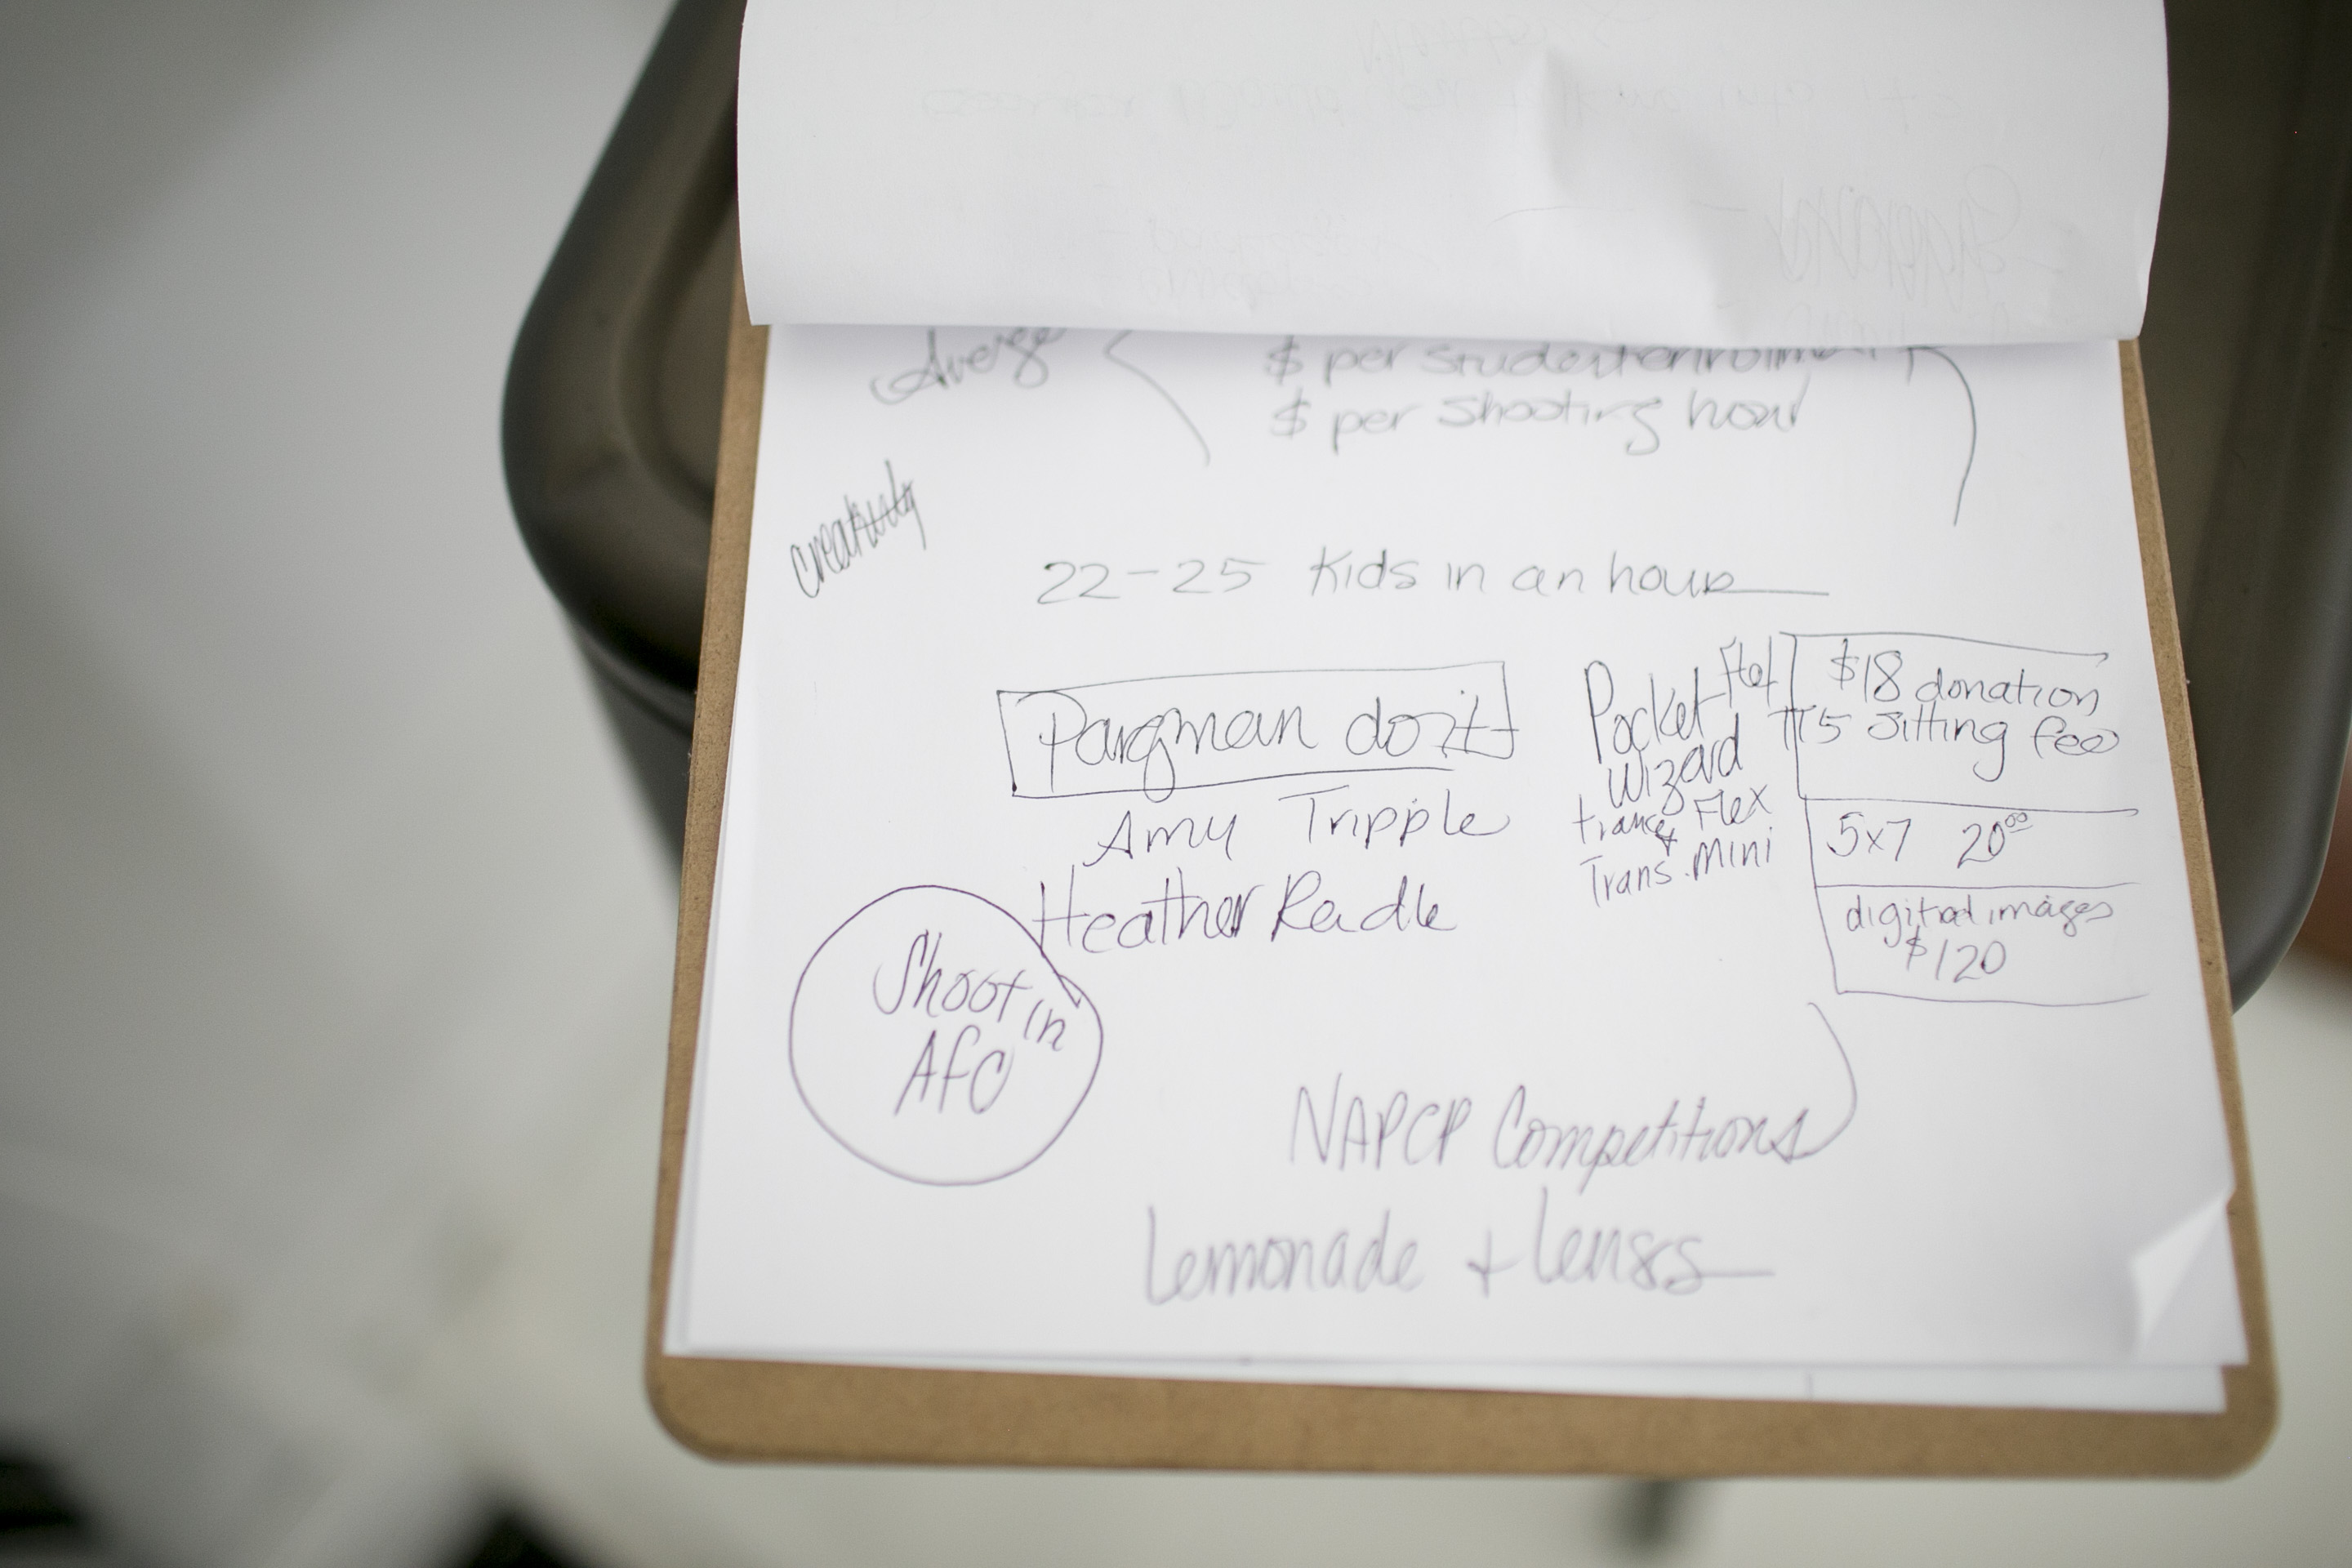 Averge
$ per student enrollment
$ per shooting hour
creativity
22-25 kids in an hour
Pargman do it
Amy Tripple
Heather Radle
Pocket
Wizard
Flex
Trans. Mini
$18 donation
sitting fee
5x7 20⁰⁰
digital images
$120
Shoot in
AfC
NAPCP Competitions
Lemonade + Lenses